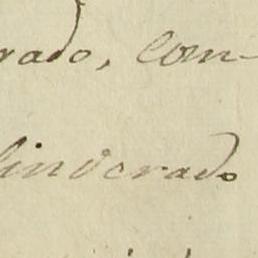 rado, com-
linderado